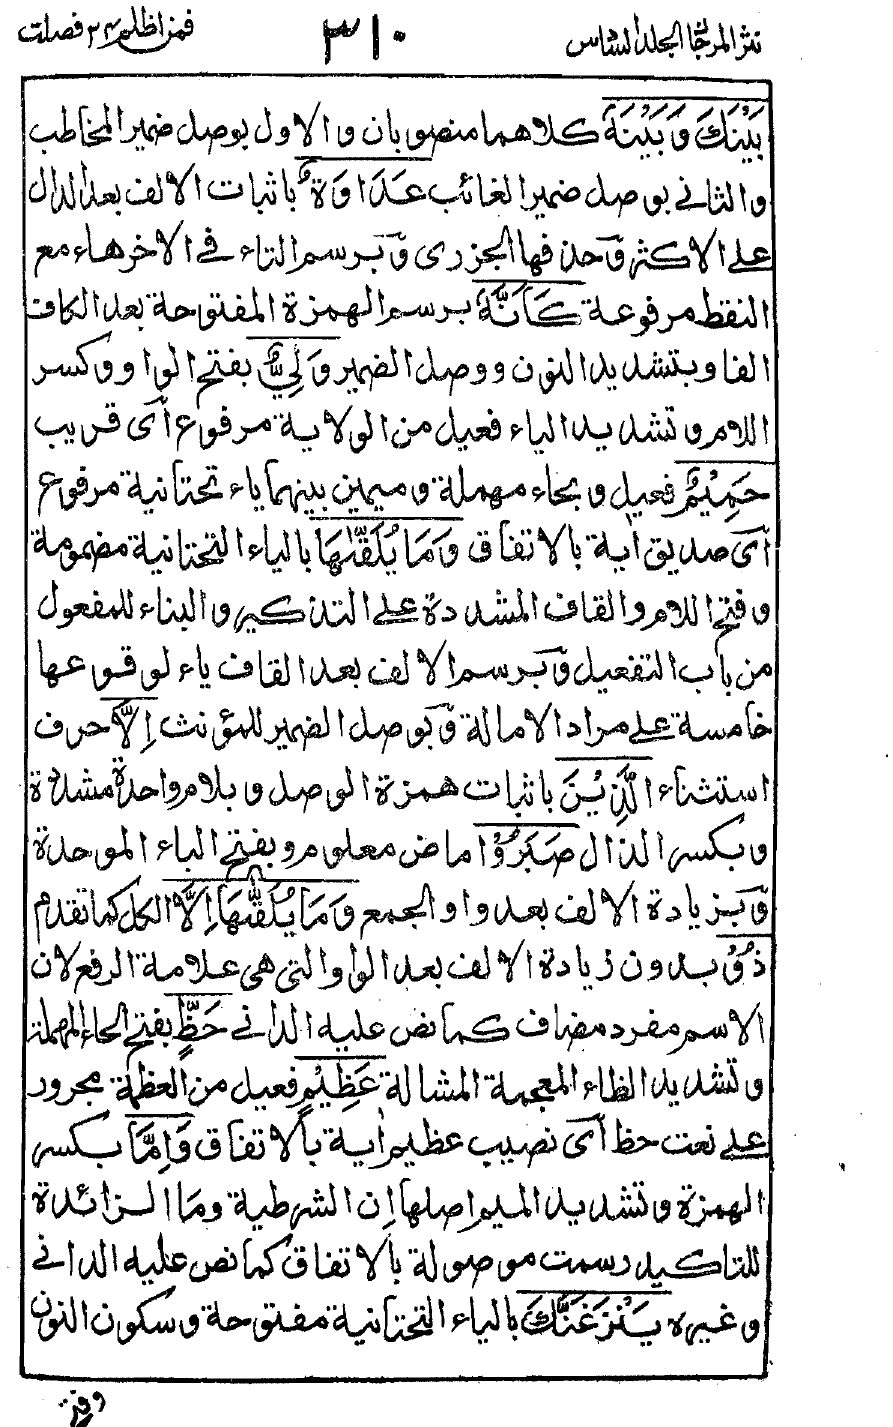 نثر المرجان المجلد السادس ٣١٠ فمن اظلم ٢٤ فصلت
بَيْنَكَ وَبَيْنَهٗ كلاهما منصوبان والاول بوصل ضمير المخاطب
والثاني بوصل ضمير الغائب عَدَاوَةٌ باثبات الالف بعد الدال
على الاكثر وحذفها الجزرى وبرسم التاء في الاخر هاء مع
النقط مرفوعة كَاَنَّهٗ برسم الهمزة المفتوحة بعد الكاف
الفا وبتشديد النون ووصل الضمير وَلِيٌّ بفتح الواو وكسر
اللام وتشديد الياء فعيل من الولاية مرفوع اى قريب
حَمِيْمٌ فعيل وبحاء مهملة وميمين بينهما ياء تحتانية مرفوع
اى صديق اٰية بالاتفاق وَمَا يُلَقّٰىهَا بالياء التحتانية مضمومة
وفتح اللام والقاف المشددة على التذكير والبناء للمفعول
من باب التفعيل وبرسم الالف بعد القاف ياء لوقوعها
خامسة على مراد الامالة وبوصل الضمير للمؤنث اِلَّا حرف
استثناء الَّذِيْنَ باثبات همزة الوصل وبلام واحدة مشددة
وبكسر الذال صَبَرُوْا ماض معلوم وبفتح الباء الموحدة
وبزيادة الالف بعد واو الجمع وَمَا يُلَقّٰىهَا اِلَّا الكل كما تقدم
ذُوْ بدون زيادة الالف بعد الواو التي هى علامة الرفع لان
الاسم مفرد مضاف كما نص عليه الداني حَظٍّ بفتح الحاء المهملة
وتشديد الظاء المعجمة المشالة عَظِيْمٍ فعيل من العظمة مجرور
على نعت حظ اى نصيب عظيم اٰية بالاتفاق وَاِمَّا بكسر
الهمزة وتشديد الميم اصلها اِن الشرطية وما الزائدة
للتاكيد رسمت موصولة بالاتفاق كما نص عليه الداني
وغيره يَنْزَغَنَّكَ بالياء التحتانية مفتوحة وسكون النون
وفتح